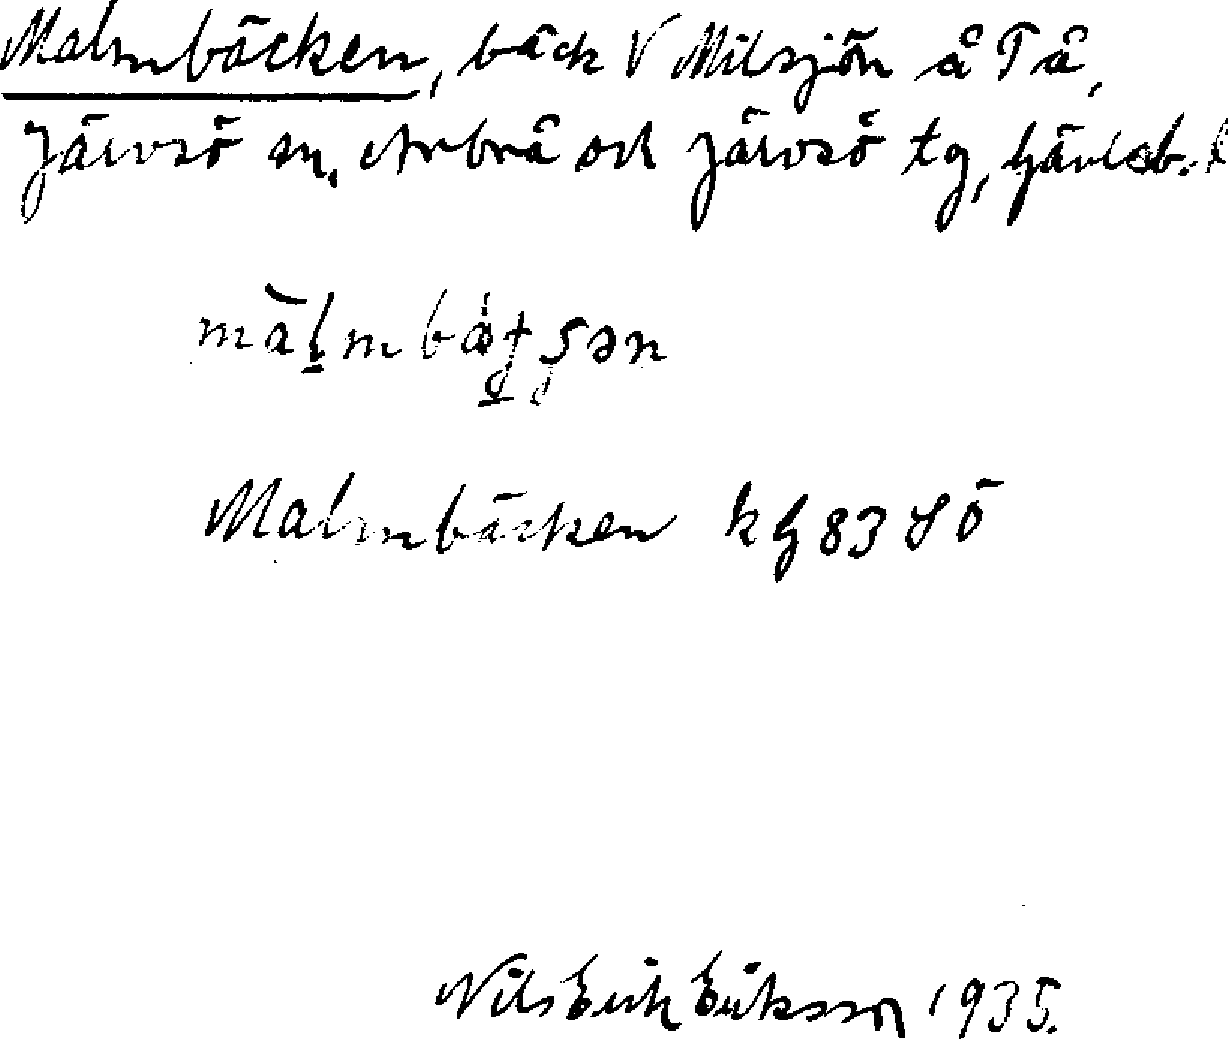 Malmbäcken, bäck V Milsjön å Tå,
Järvsö sn, Arbrå och Järvsö tg, Gävleb. l
Malmbäcken kg 83 SÖ
Nils Erik Eriksson 1935.